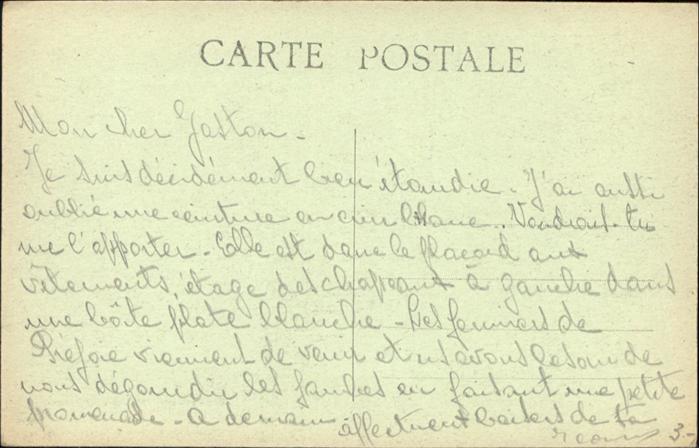 CARTE POSTALE
Mon cher Gaston -
Je suis décidément bien étourdie. J'ai aussi
oublié une ceinture en cuir blanc. Voudrais-tu
me l'apporter - Elle est dans le placard aux
vêtements, étage des chapeaux à gauche dans
une bôite plate blanche - Les fermiers de
viennent de venir et ns avons besoin de
nous dégourdir les jambes en faisant une petite
promenade - à demain affectueux baisers de ta
3-